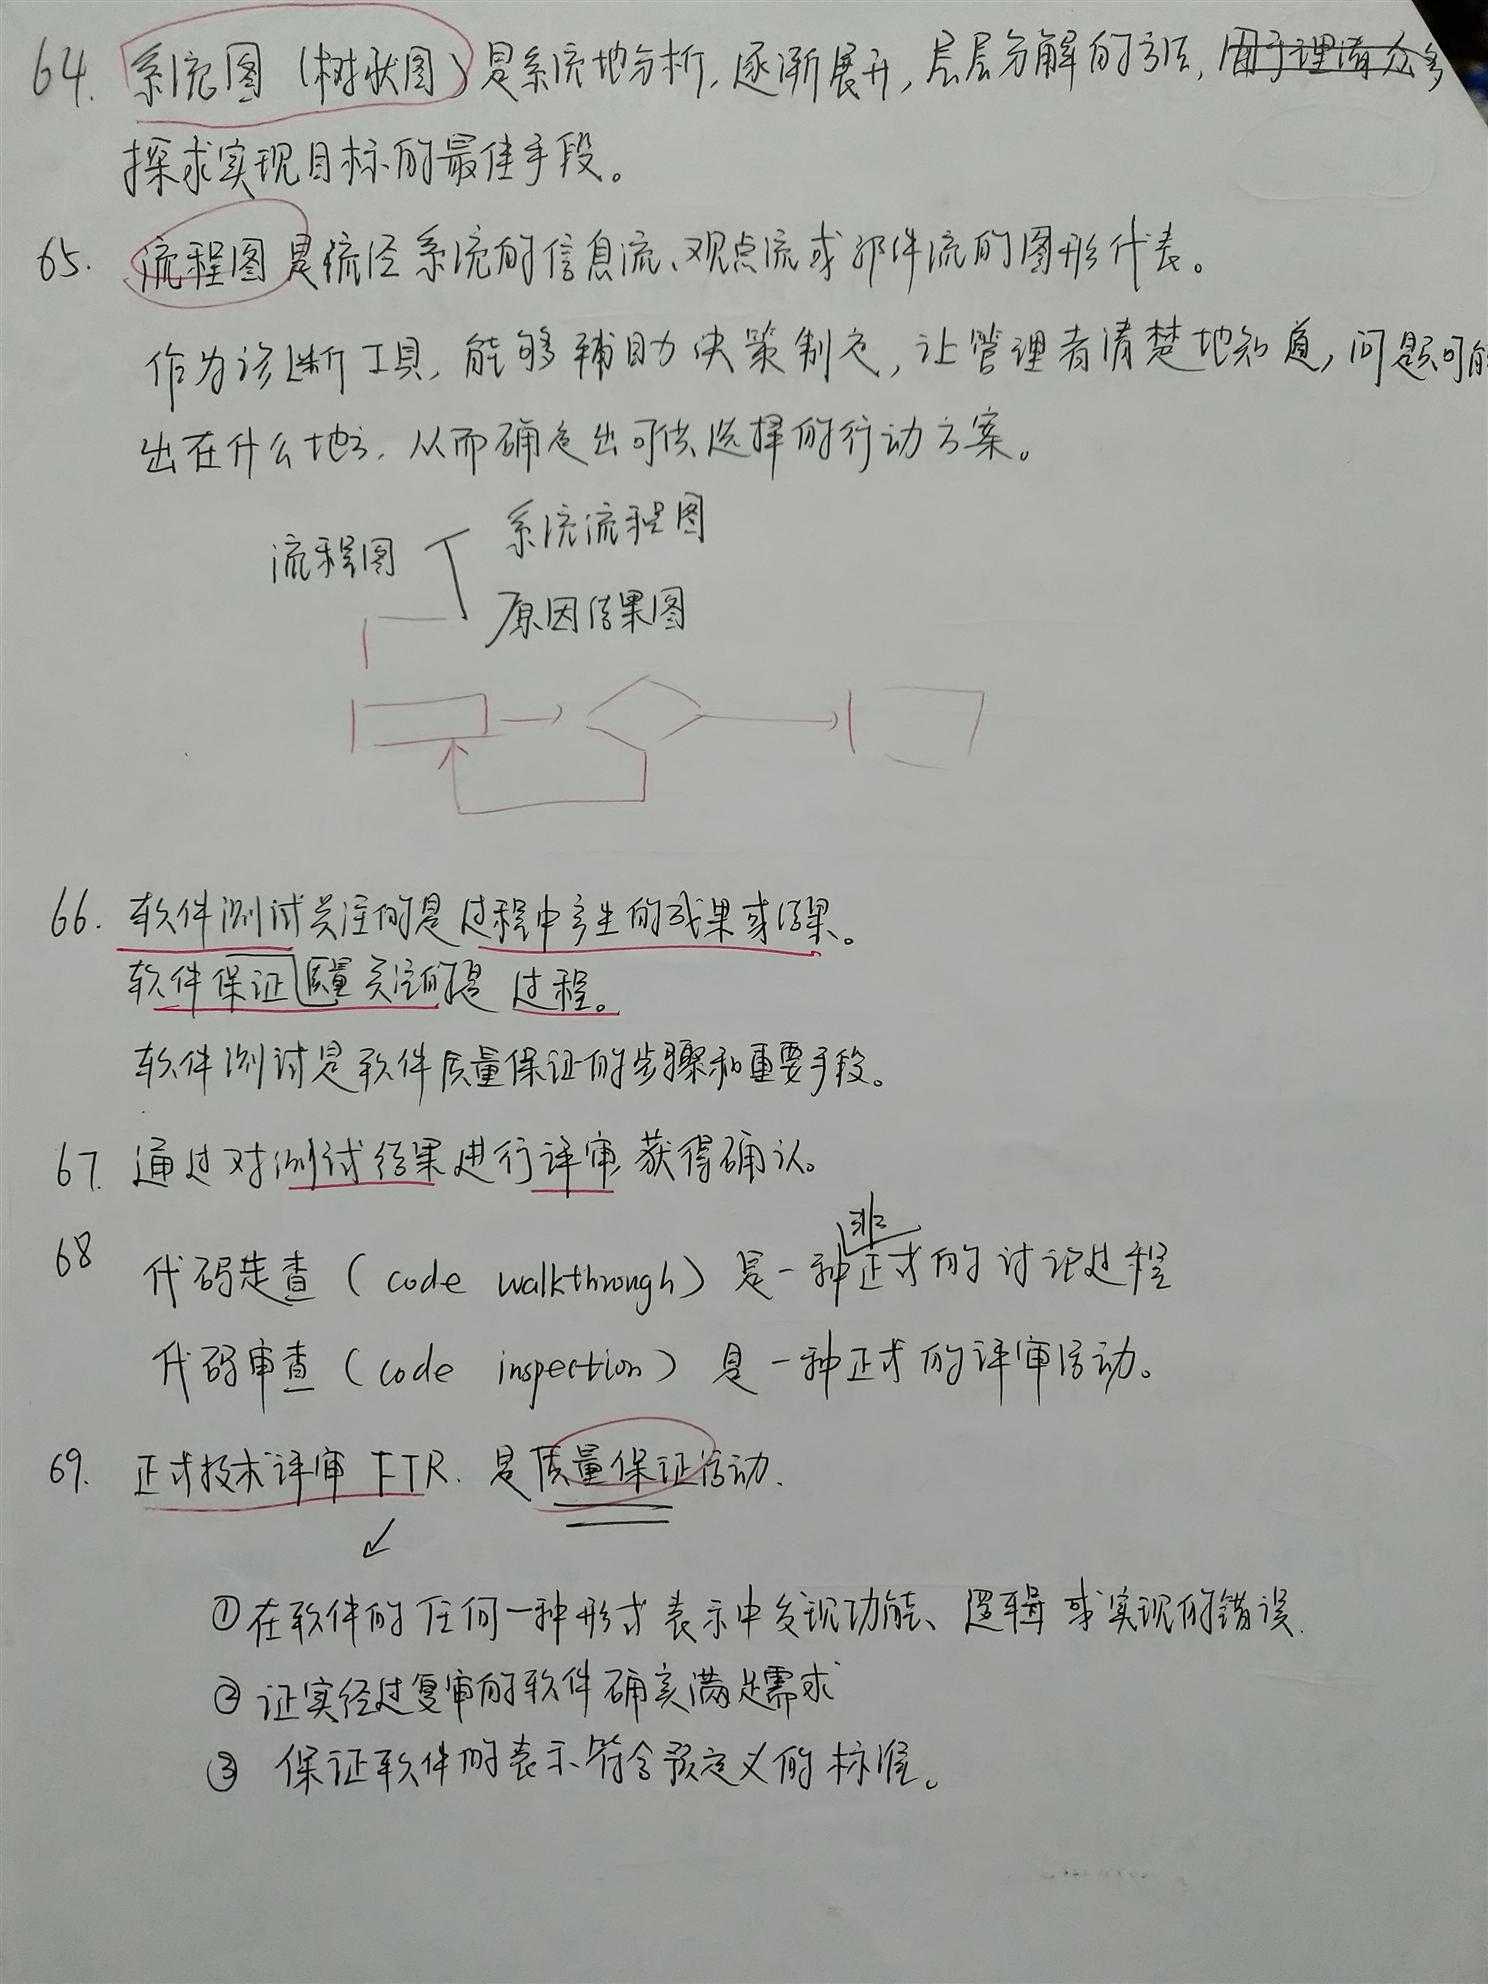 64. 系统图（树状图）是系统地分析，逐渐展开，层层分解的方法，用于理清众多
探求实现目标的最佳手段。
65. 流程图是流经系统的信息流、观点流或部件流的图形代表。
作为诊断工具，能够辅助决策制定，让管理者清楚地知道，问题可能
出在什么地方，从而确定出可供选择的行动方案。
系统流程图
流程图
原因结果图
66. 软件测试关注的是过程中产生的成果或结果。
软件保证质量关注的是过程。
软件测试是软件质量保证的步骤和重要手段。
67. 通过对测试结果进行评审获得确认。
非
68 代码走查（code walkthrough）是一种正式的讨论过程
代码审查（code inspection）是一种正式的评审活动。
69. 正式技术评审 FTR. 是质量保证活动.
①在软件的任何一种形式表示中发现功能、逻辑或实现的错误.
② 证实经过复审的软件确实满足需求
③ 保证软件的表示符合预定义的标准。